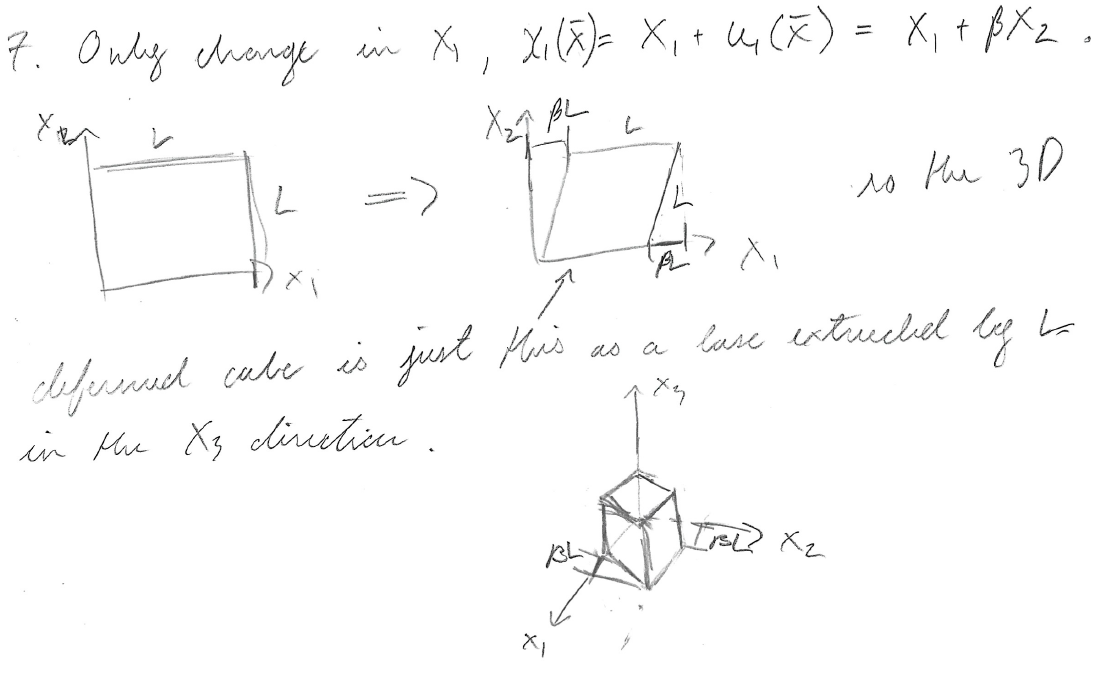 7. Only change in X₁, x₁(x̄) = X₁ + u₁(x̄) = X₁ + βX₂.
X₂ L L X₁ => X₂ βL L L βL X₁ so the 3D
deformed cube is just this as a base extruded by L
in the X₃ direction.
X₃
βL βL X₂
X₁